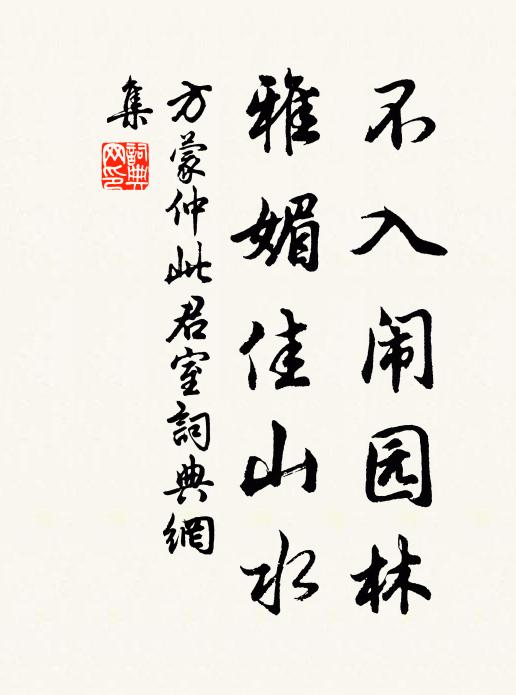 不入闹园林
雅媚佳山水
方蒙仲此君室詞典網
集
詞典
网印